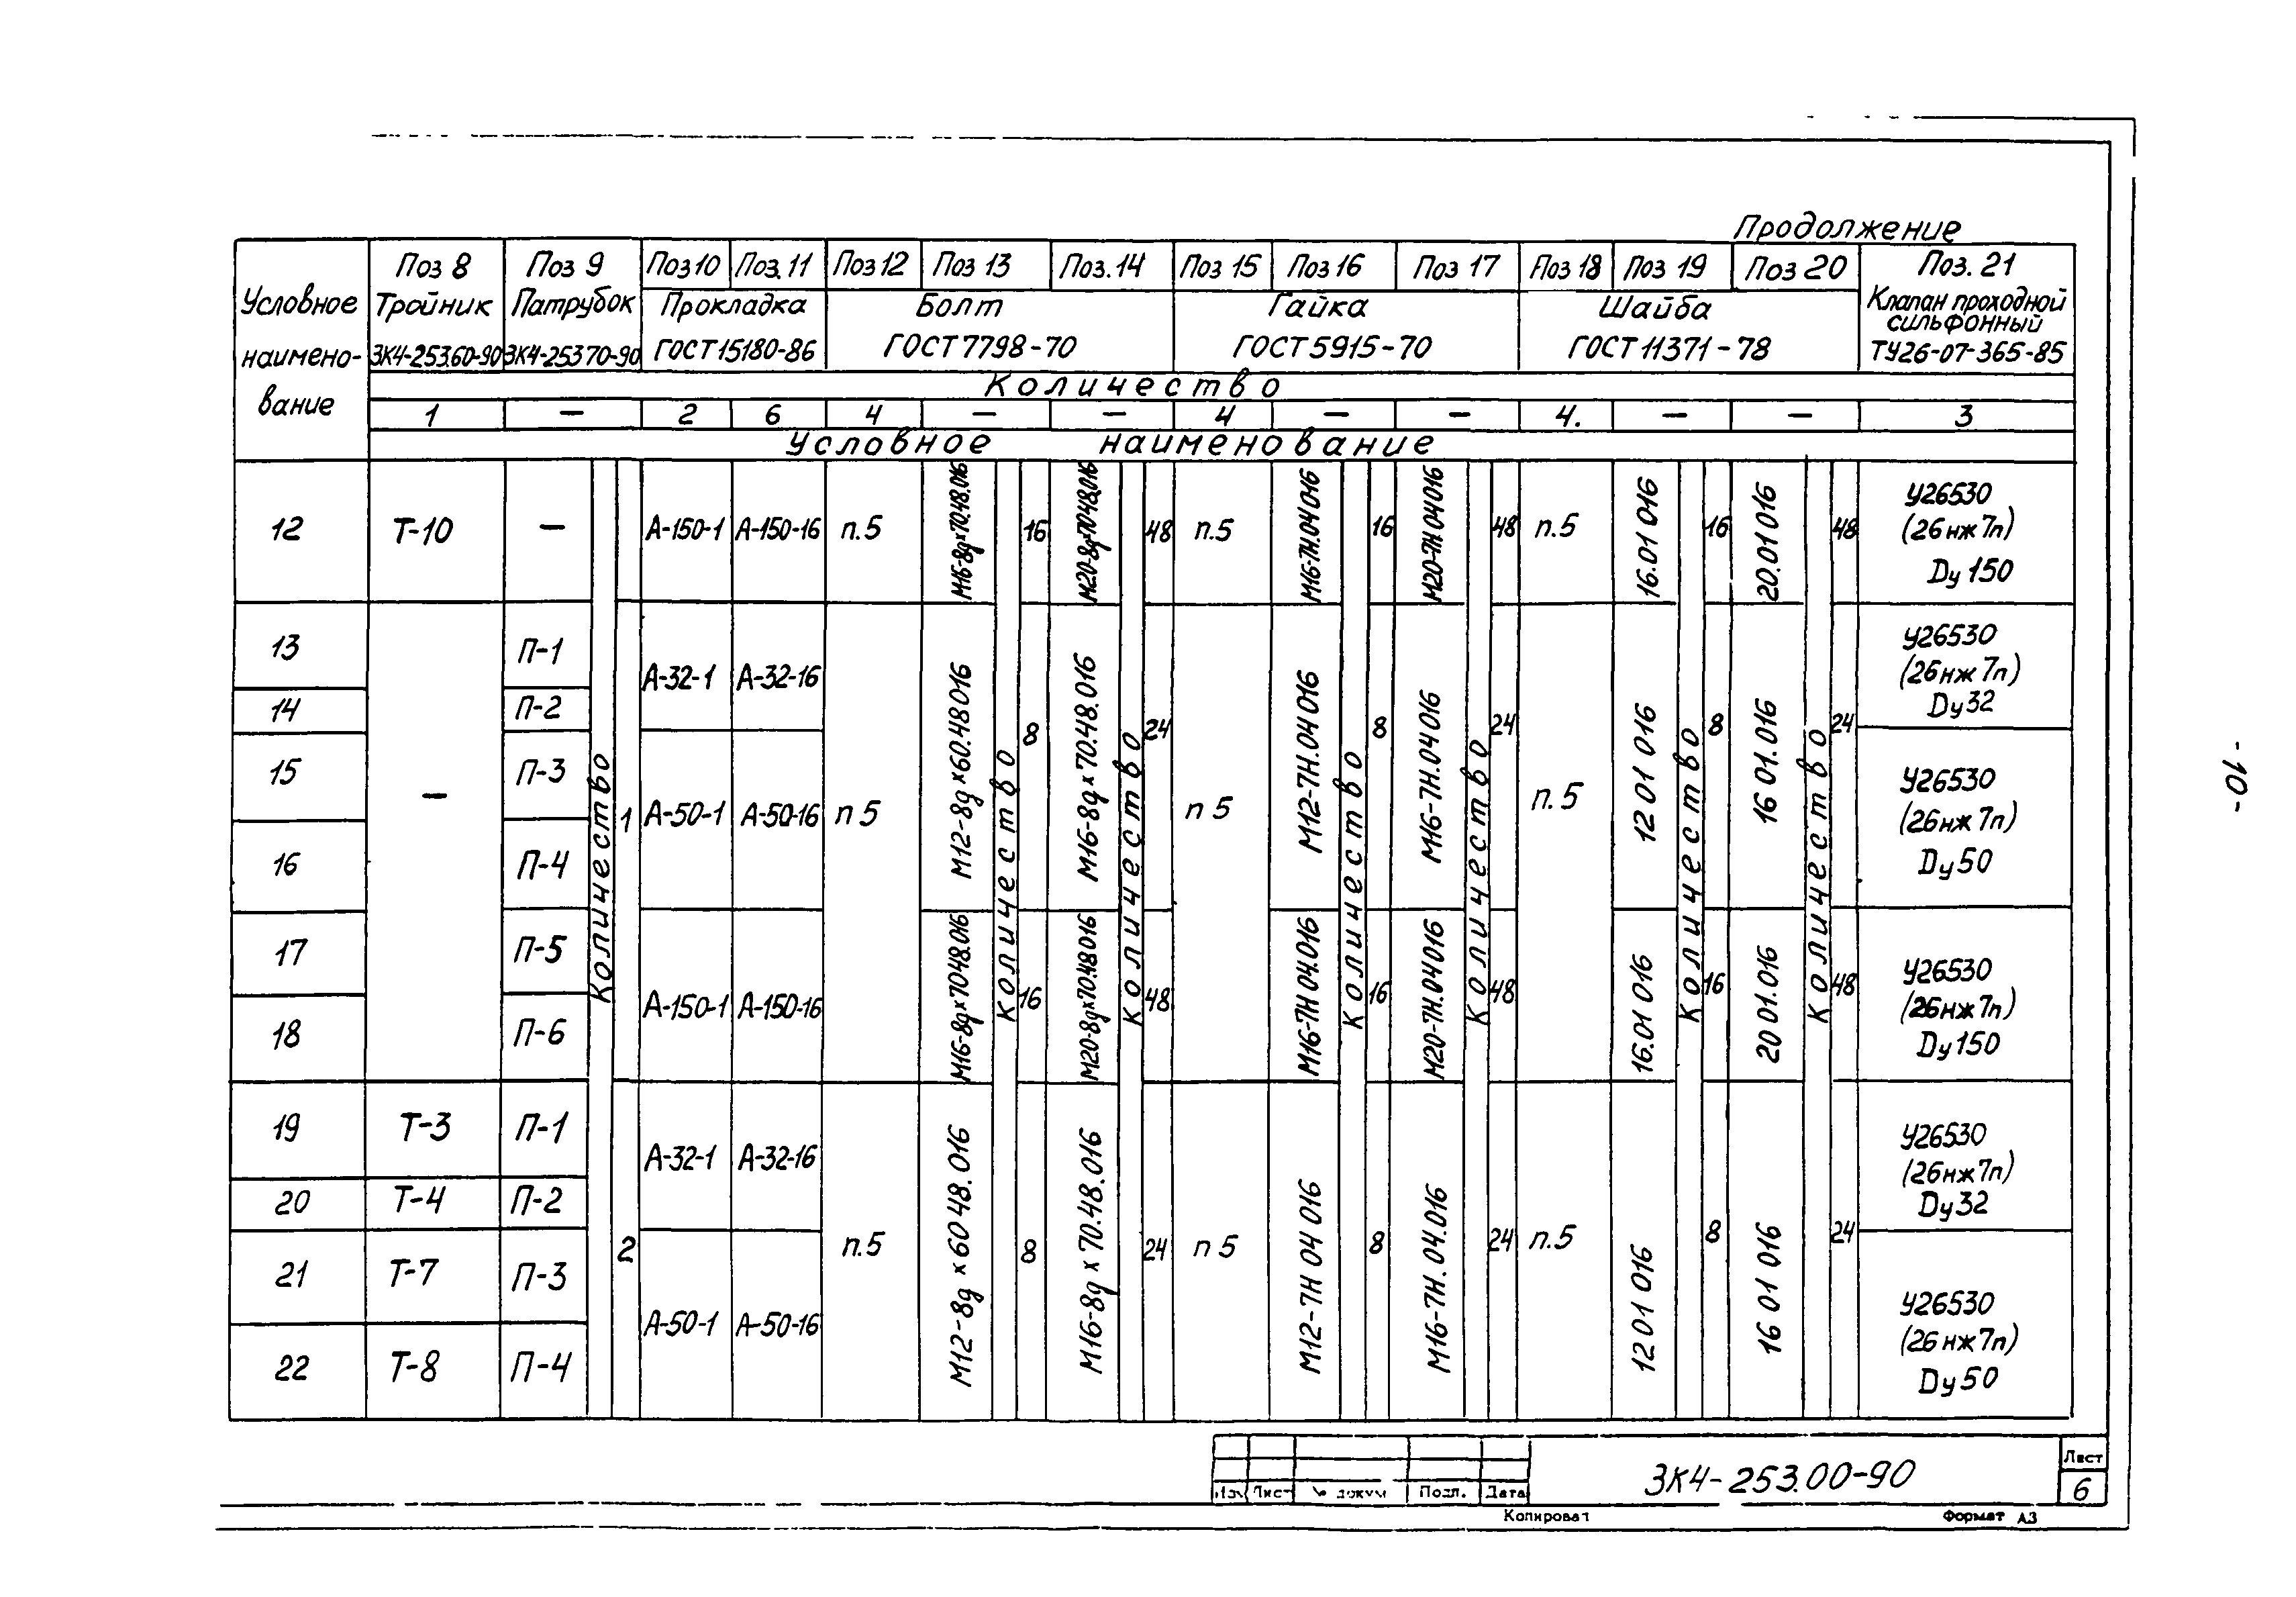 Продолжение
Условное наимено- вание
Поз 8 Поз 9 Поз 10 Поз. 11 Поз 12 Поз 13 Поз. 14 Поз 15 Поз 16 Поз 17 Поз 18 Поз 19 Поз 20 Поз. 21
Тройник Патрубок Прокладка Болт Гайка Шайба Клапан проходной
сильфонный
ЗК4-253.60-90 ЗК4-253 70-90 ГОСТ 15180-86 ГОСТ 7798-70 ГОСТ 5915-70 ГОСТ 11371-78 ТУ26-07-365-85
Количество
1 — 2 6 4 — — 4 — — 4. — — 3
Условное наименование
12 Т-10 — А-150-1 А-150-16 п.5 М16-8g×70.48.016 16 М20-8g×70.48.016 48 п.5 М16-7Н.04 016 16 М20-7Н 04 016 48 п.5 16.01 016 16 20.01 016 48
У26530
(26нж7п)
Dу 150
13 П-1
14 П-2
15 П-3
16 П-4
17 П-5
18 П-6
—
Количество
1
А-32-1 А-32-16
А-50-1 А-50-16
А-150-1 А-150-16
п 5
М12-8g×60.48 016
Количество
8
М16-8g×70.48.016
Количество
24
п 5
М12-7Н.04 016
Количество
8
М16-7Н.04 016
Количество
24
п.5
12 01 016
Количество
8
16 01.016
Количество
24
У26530
(26нж7п)
Dу32
У26530
(26нж7п)
Dу50
М16-8g×70 48.016 16 М20-8g×70.48 016 48 М16-7Н 04.016 16 М20-7Н.04 016 48 16.01 016 16 20 01.016 48
У26530
(26нж7п)
Dу150
19 Т-3 П-1
20 Т-4 П-2
21 Т-7 П-3
22 Т-8 П-4
2
А-32-1 А-32-16
А-50-1 А-50-16
п.5 М12-8g×60 48.016 8 М16-8g×70.48.016 24 п 5 М12-7Н 04 016 8 М16-7Н.04.016 24 п.5 12 01 016 8 16 01 016 24
У26530
(26нж7п)
Dу32
У26530
(26нж7п)
Dу50
-10-
ЗК4-253.00-90
Лист
6
Лист № докум Подп. Дата
Копировал
Формат А3